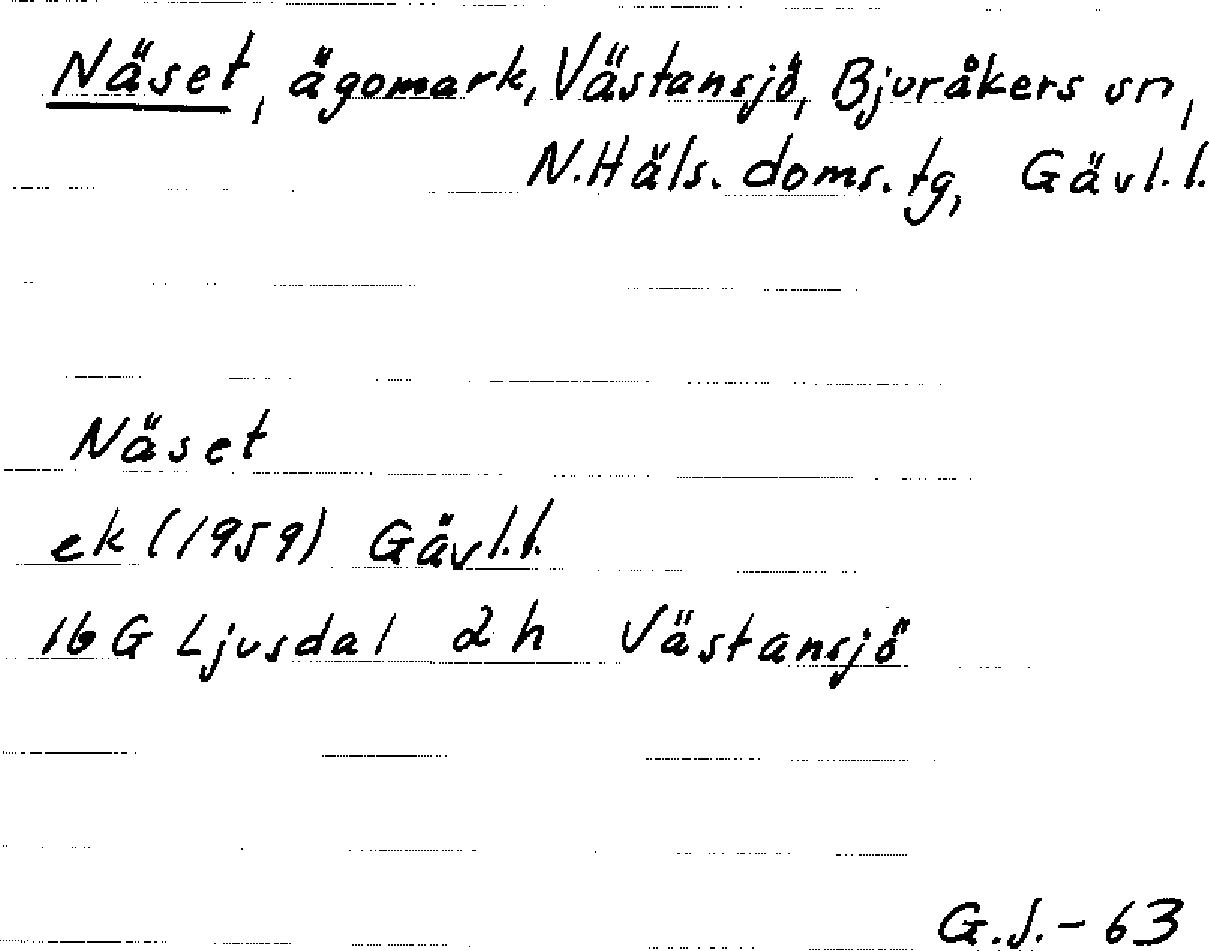 Näset, ägomark, Västansjö, Bjuråkers sn,
N.Häls. doms.tg, Gävl.l.
Näset
ek (1959) Gävl.l.
16 G Ljusdal 2 h Västansjö
G.J.-63